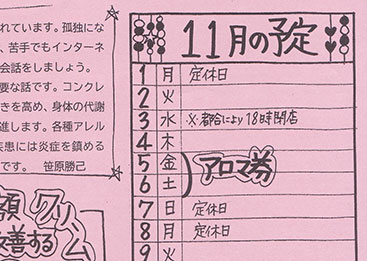 れています。孤独にな
、苦手でもインターネ
会話をしましょう。
要な話です。コンクレ
きを高め、身体の代謝
進します。各種アレル
疾患には炎症を鎮める
です。 笹原勝己
額 クリーム
改善する
11月の予定
1 月 定休日
2 火
3 水 ※都合により18時閉店
4 木
5 金 アロマ券
6 土
7 日 定休日
8 月 定休日
9 火